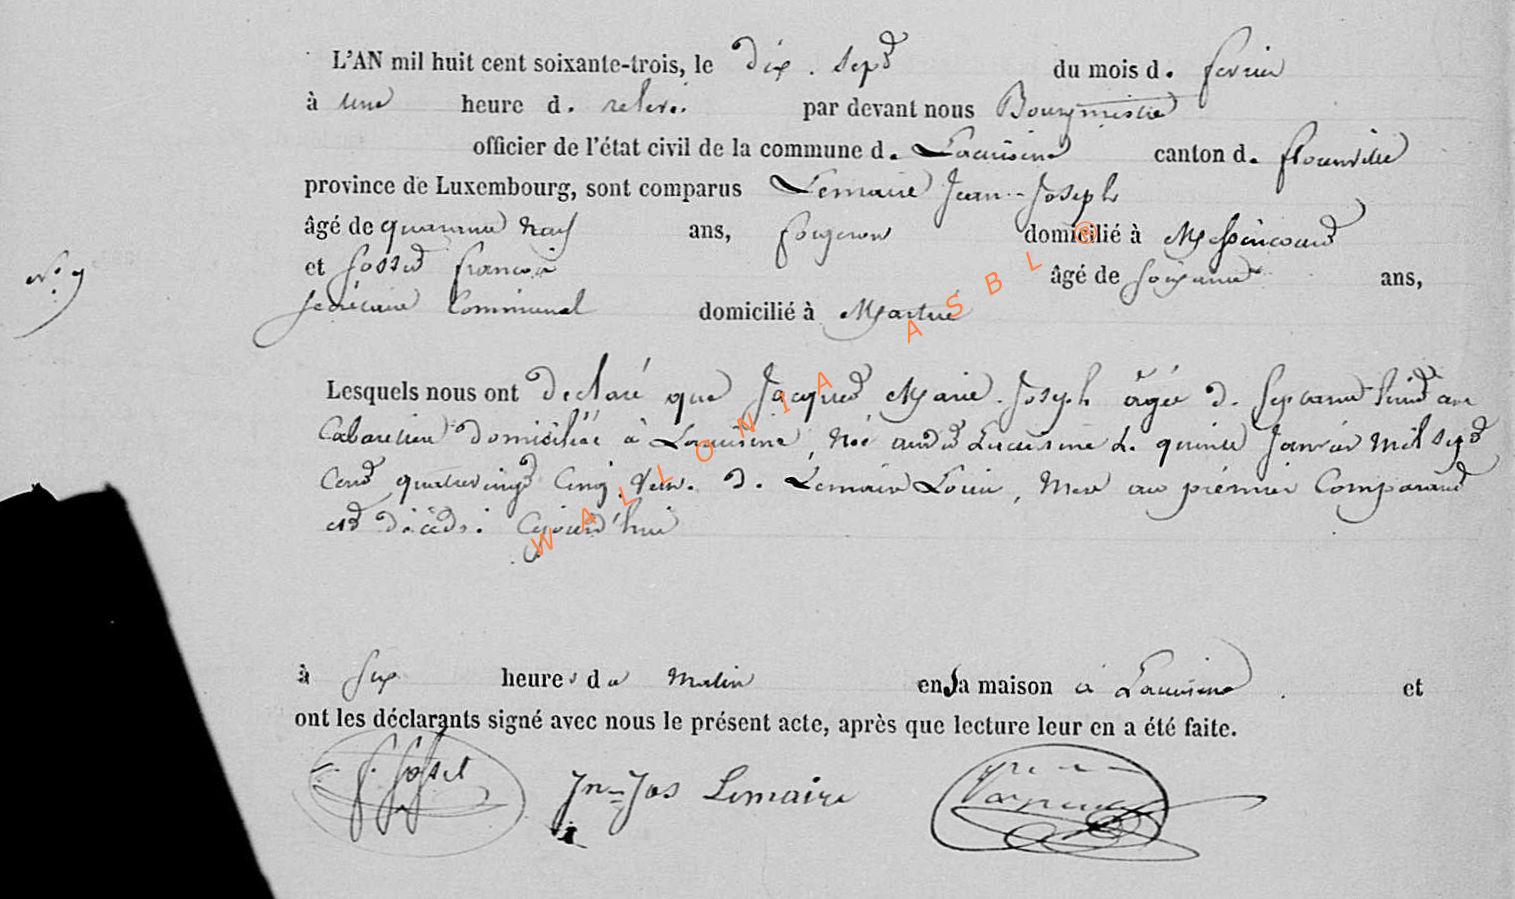 L'AN mil huit cent soixante-trois, le dix-sept du mois d. fevrier
à une heure d. relevé. par devant nous Bourgmestre
officier de l'état civil de la commune d. Lacuisine canton d. florenville
province de Luxembourg, sont comparus Lemaire Jean-Joseph
âgé de quarante neuf ans, forgeron domicilié à Messincourt
N.° 9
et Gosset françois âgé de soixante ans,
secrétaire Communal domicilié à Martué
Lesquels nous ont déclaré que Jacques Marie-Joseph âgée d. septante huit ans
Cabaretière domiciliée à Lacuisine, née audit Lacuisine L. quinze Janvier mil sept
Cent quatrevingt Cinq, Veuv. d. Lemaire Louis, Mere au prémier Comparant
est décédé. Ajourd'hui
à six heures du Matin en la maison à Lacuisine. et
ont les déclarants signé avec nous le présent acte, après que lecture leur en a été faite.
f. Gosset Jn=Jos Lemaire
WALLONIA ASBL ©